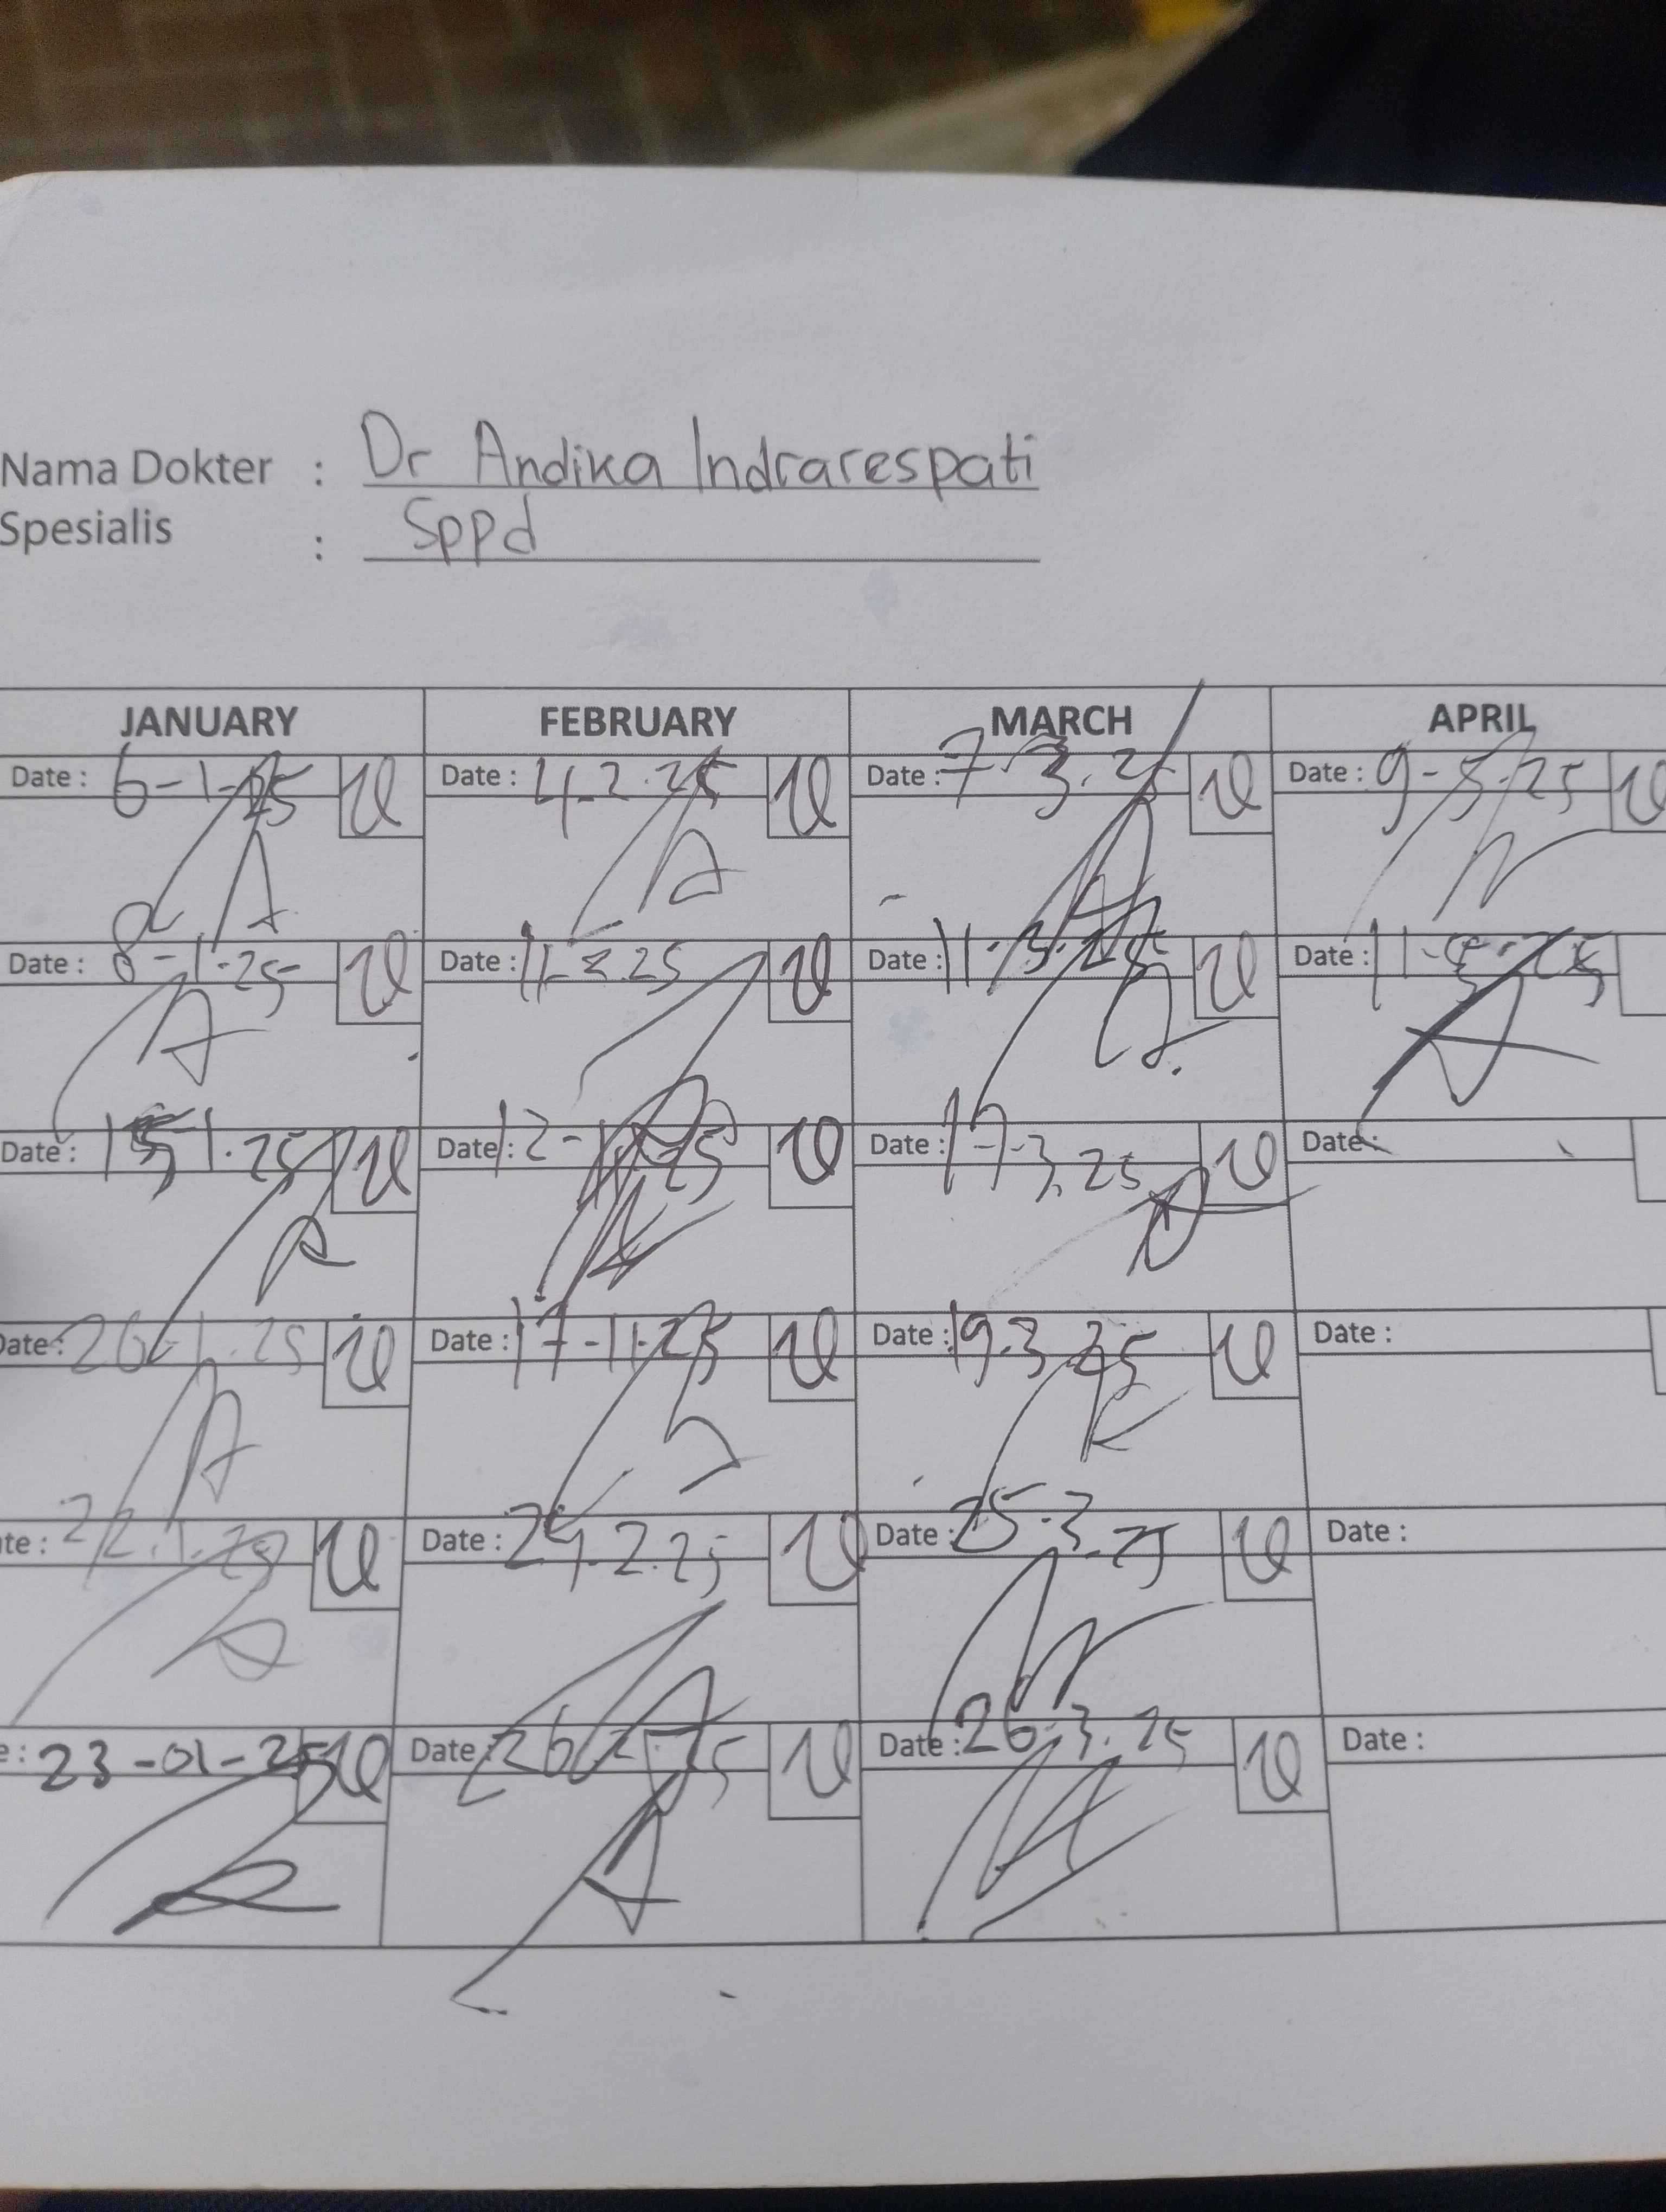 Nama Dokter : Dr Andika Indrarespati
Spesialis : Sppd
JANUARY FEBRUARY MARCH APRIL
Date : 6-1-25 Date : 4-2.25 Date : 7-3.25 Date : 9-5-25
Date : 8-1-25 Date : 11-2.25 Date : 11-3-25 Date : 11-5-25
Date : 15-1.25 Date : 12- Date : 17-3.25 Date :
Date : 20-1.25 Date : 17-11-25 Date : 19.3.25 Date :
te : 22.1.25 Date : 24-2.25 Date : 25-3.25 Date :
e : 23-01-25 Date : 26-2-25 Date : 26.3.25 Date :